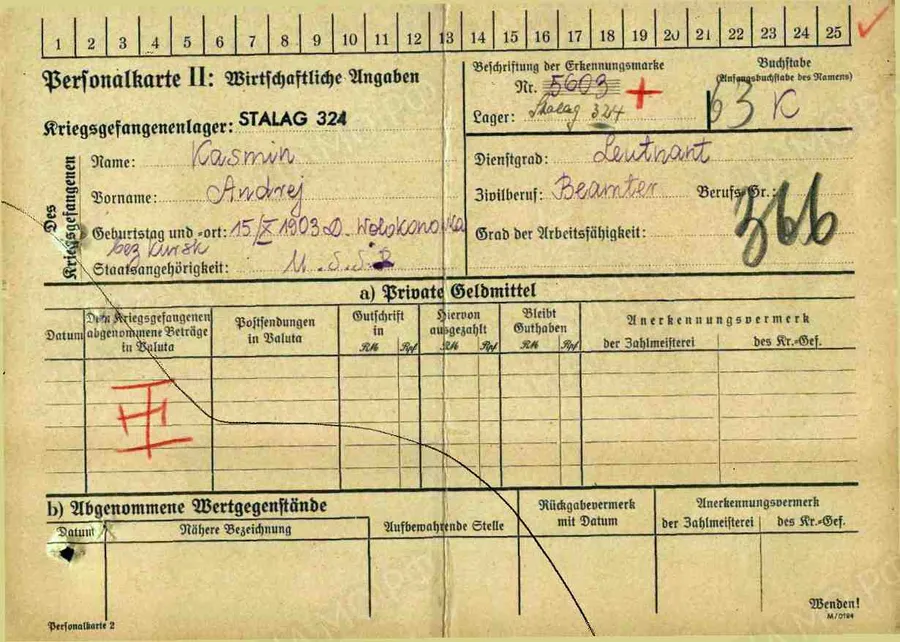 1 2 3 4 5 6 7 8 9 10 11 12 13 14 15 16 17 18 19 20 21 22 23 24 25
Personalkarte II: Wirtschaftliche Angaben
Beschriftung der Erkennungsmarke
Nr. 5603
Lager: Stalag 324
Buchstabe
(Anfangsbuchstabe des Namens)
63 K
Kriegsgefangenenlager: STALAG 324
Des Kriegsgefangenen
Name: Kasmin
Vorname: Andrej
Geburtstag und -ort: 15/X 1903 D. Wolokonowka
bez Kursk
Staatsangehörigkeit: U.S.S.R
Dienstgrad: Leutnant
Zivilberuf: Beamter Berufs-Gr.: 366
Grad der Arbeitsfähigkeit:
a) Private Geldmittel
Datum
Dem Kriegsgefangenen abgenommene Beträge in Valuta
Postsendungen in Valuta
Gutschrift in
RM Rpf
Hiervon ausgezahlt
RM Rpf
Bleibt Guthaben
RM Rpf
Anerkennungsvermerk
der Zahlmeisterei des Kr.-Gef.
b) Abgenommene Wertgegenstände
Datum
Nähere Bezeichnung
Aufbewahrende Stelle
Rückgabevermerk mit Datum
Anerkennungsvermerk
der Zahlmeisterei des Kr.-Gef.
Wenden!
M/0194
Personalkarte 2